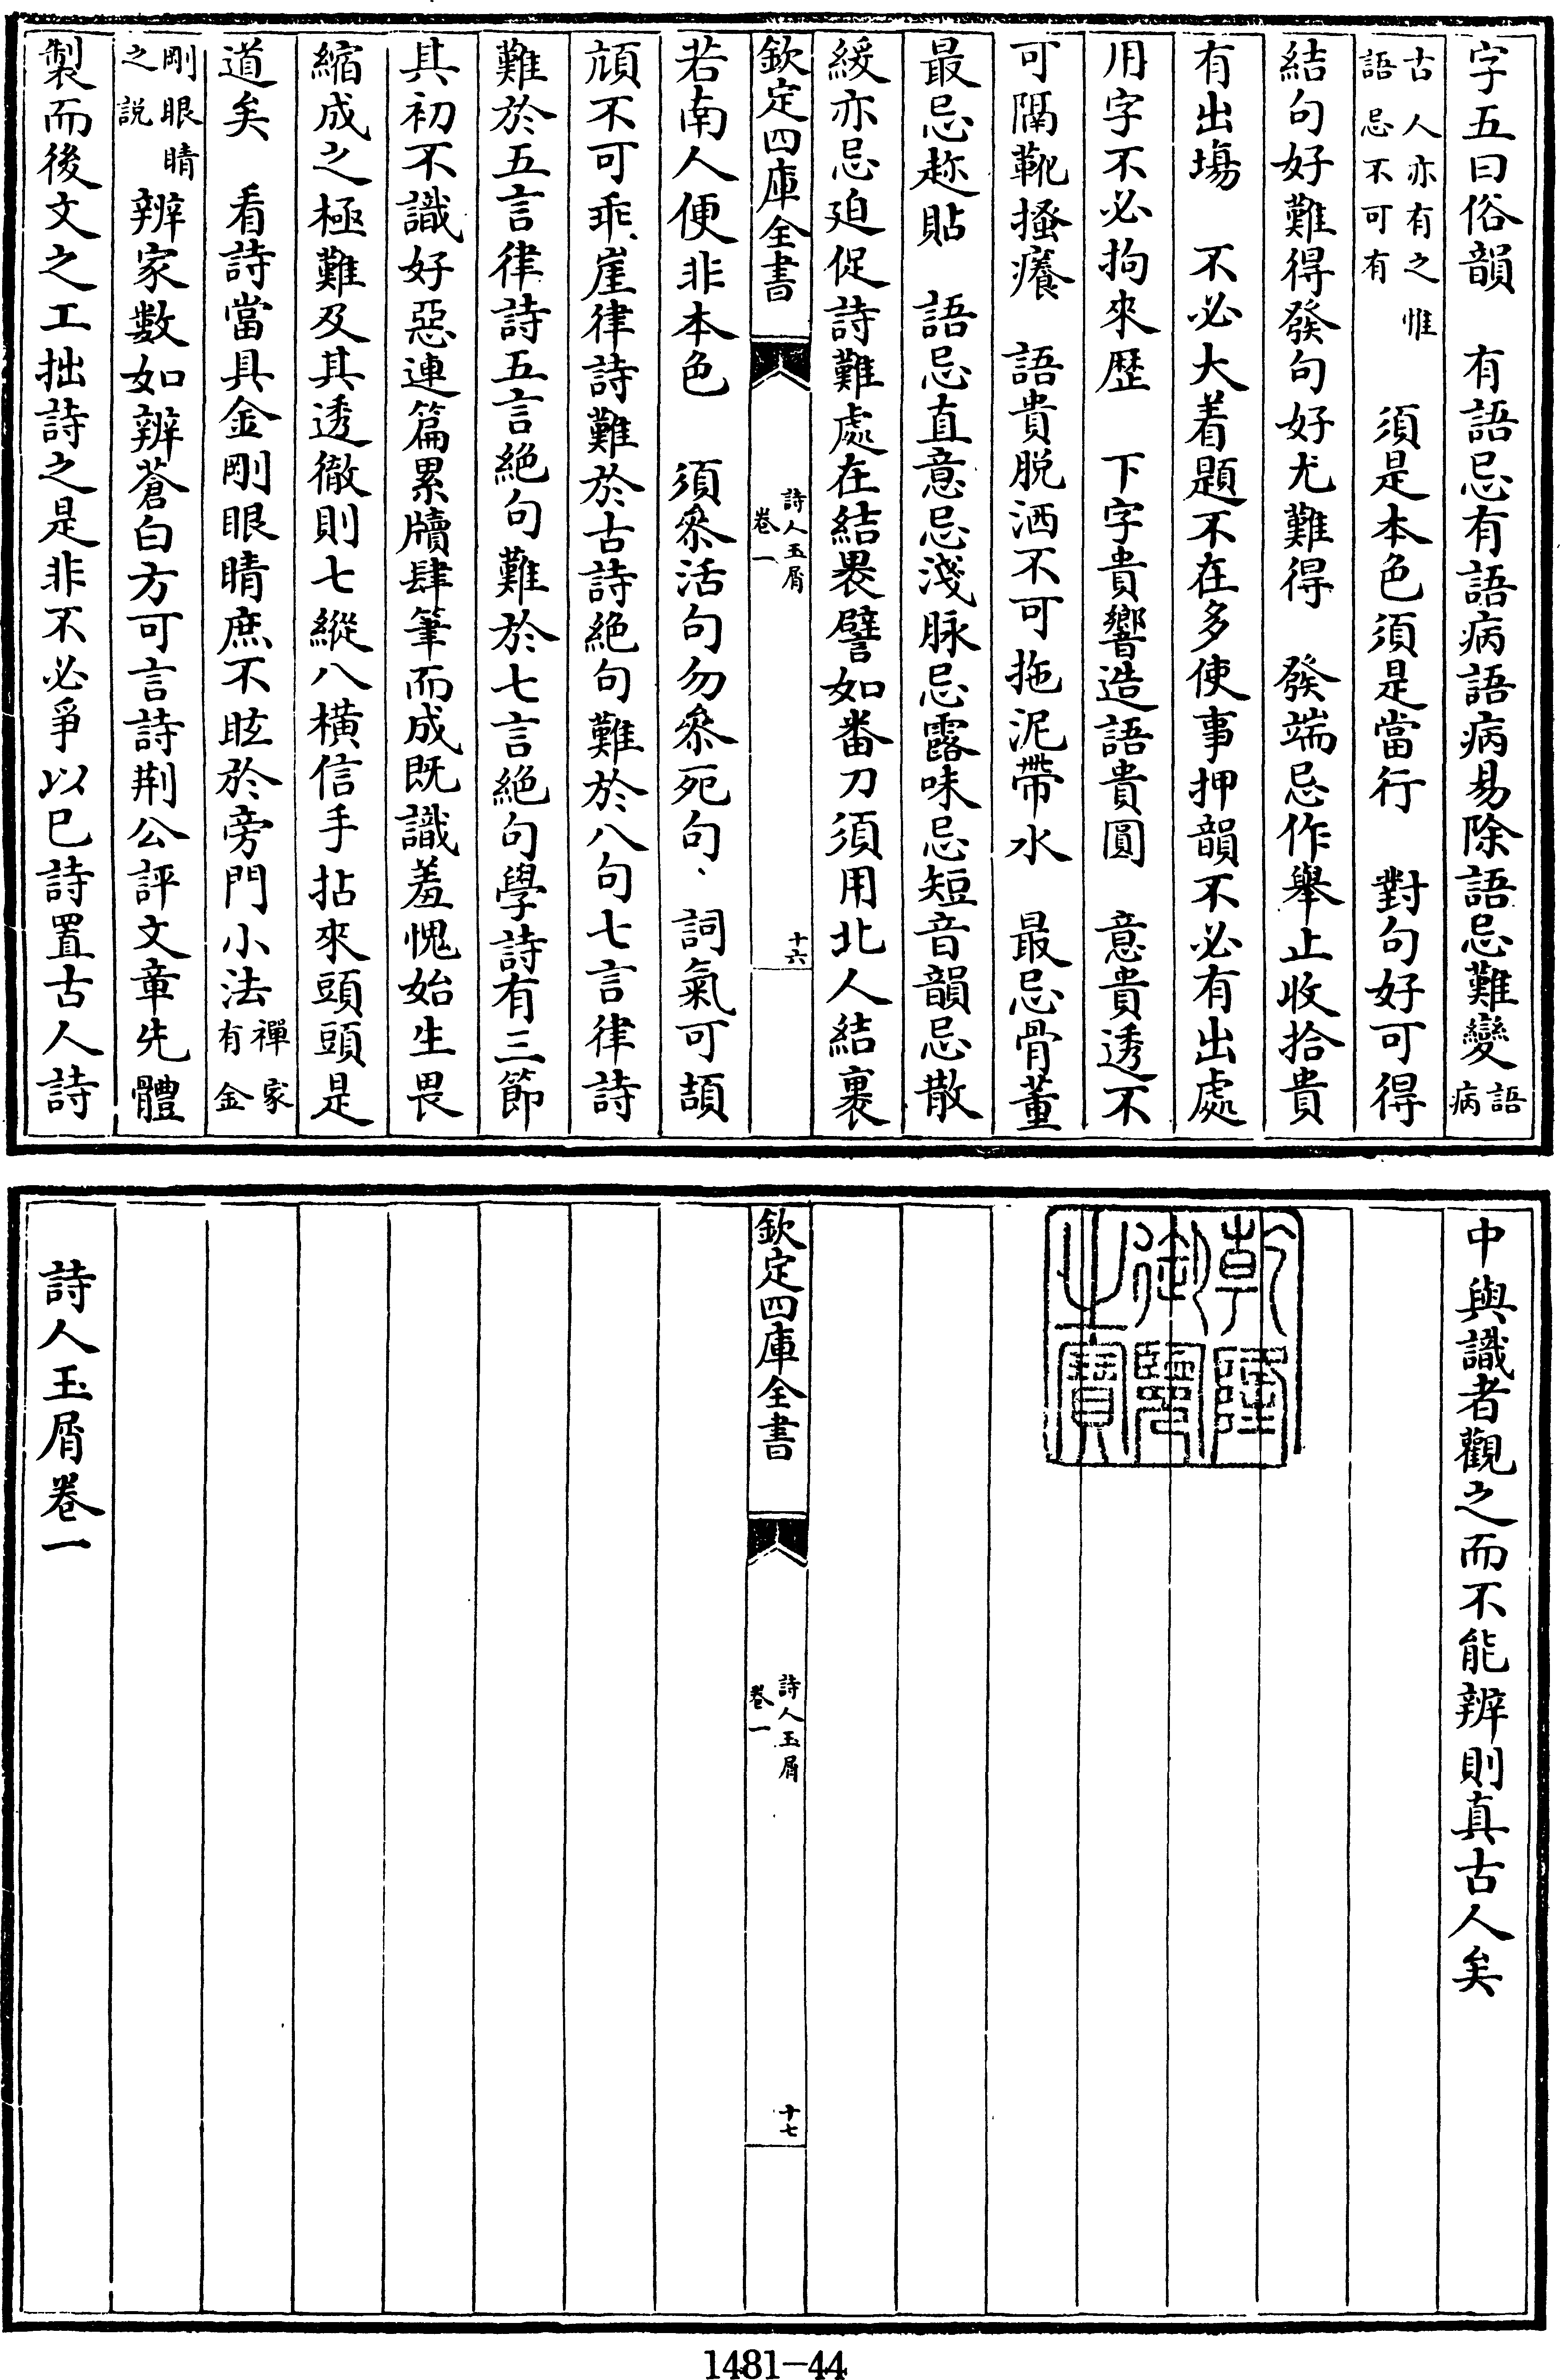 字五曰俗韻　有語忌有語病語病易除語忌難變語病
古人亦有之惟語忌不可有　須是本色須是當行　對句好可得
結句好難得發句好尤難得　發端忌作舉止收拾貴
有出塲　不必大着題不在多使事押韻不必有出處
用字不必拘來歷　下字貴響造語貴圓　意貴透不
可隔靴搔癢　語貴脱洒不可拖泥帶水　最忌骨董
最忌趂貼　語忌直意忌淺脉忌露味忌短音韻忌散
緩亦忌廹促詩難處在結裹譬如番刀須用北人結裹
欽定四庫全書　詩人玉屑卷一　十六
若南人便非本色　須叅活句勿叅死句、詞氣可頡
頏不可乖崖律詩難於古詩絶句難於八句七言律詩
難於五言律詩五言絶句難於七言絶句學詩有三節
其初不識好惡連篇累牘肆筆而成既識羞愧始生畏
縮成之極難及其透徹則七縱八橫信手拈來頭頭是
道矣　看詩當具金剛眼睛庶不眩於旁門小法禪家有金
剛眼睛之説　辨家數如辨蒼白方可言詩荆公評文章先體
製而後文之工拙詩之是非不必爭以己詩置古人詩
中與識者觀之而不能辨則真古人矣
乾隆御覽之寶
欽定四庫全書　詩人玉屑卷一　十七
詩人玉屑卷一
1481-44